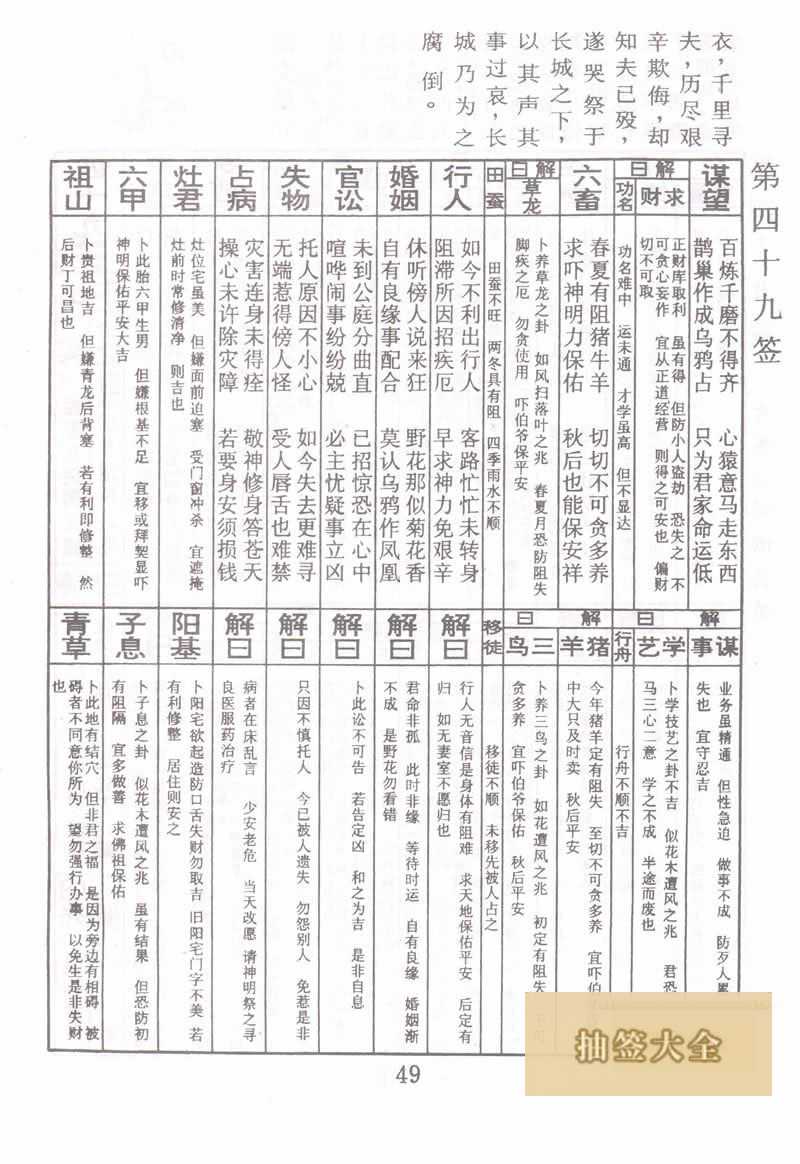 衣，千里寻
夫，历尽艰
辛欺侮，却
知夫已殁，
遂哭祭于
长城之下，
以其声其
事过哀，长
城乃为之
腐倒。
第四十九签
谋望
百炼千磨不得齐 心猿意马走东西
鹊巢作成乌鸦占 只为君家命运低
解曰
求财
正财库取利 虽有得 但防小人盗劫 恐失之 不
可贪心妄作 宜从正道经营 则得之可安也 偏财
切不可取
功名
功名难中 运未通 才学虽高 但不显达
六畜
春夏有阻猪牛羊 切切不可贪多养
求吓神明力保佑 秋后也能保安祥
解曰
草龙
卜养草龙之卦 如风扫落叶之兆 春夏月恐防阻失
脚疾之厄 勿贪使用 吓伯爷保平安
田蚕
田蚕不旺 两冬具有阻 四季雨水不顺
行人
如今不利出行人 客路忙忙未转身
阻滞所因招疾厄 早求神力免艰辛
婚姻
休听傍人说来狂 野花那似菊花香
自有良缘事配合 莫认乌鸦作凤凰
官讼
未到公庭分曲直 已招惊恐在心中
喧哗闹事纷纷兢 必主忧疑事立凶
失物
托人原因不小心 如今失去更难寻
无端惹得傍人怪 受人唇舌也难禁
占病
灾害连身未得痊 敬神修身答苍天
操心未许除灾障 若要身安须损钱
灶君
灶位宅虽美 但嫌面前迫塞 受门窗冲杀 宜遮掩
灶前时常修清净 则吉也
六甲
卜此胎六甲生男 但嫌根基不足 宜移或拜契显吓
神明保佑平安大吉
祖山
卜贵祖地吉 但嫌青龙后背塞 若有利即修整 然
后财丁可昌也
解曰
谋事
业务虽精通 但性急迫 做事不成 防歹人累
失也 宜守忍吉
学艺
卜学技艺之卦不吉 似花木遭风之兆 君恐
马三心二意 学之不成 半途而废也
行舟
行舟不顺不吉
解曰
猪羊
今年猪羊定有阻失 至切不可贪多养 宜吓伯
中大只及时卖 秋后平安
三鸟
卜养三鸟之卦 如花遭风之兆 初定有阻失
贪多养 宜吓伯爷保佑 秋后平安
移徒
移徒不顺 未移先被人占之
解曰
行人无音信是身体有阻难 求天地保佑平安 后定有
归 如无妻室不愿归也
解曰
君命非孤 此时非缘 等待时运 自有良缘 婚姻渐
不成 是野花勿看错
解曰
卜此讼不可告 若告定凶 和之为吉 是非自息
解曰
只因不慎托人 今已被人遗失 勿怨别人 免惹是非
解曰
病者在床乱言 少安老危 当天改愿 请神明祭之寻
良医服药治疗
阳基
卜阳宅欲起造防口舌失财勿取吉 旧阳宅门字不美 若
有利修整 居住则安之
子息
卜子息之卦 似花木遭风之兆 虽有结果 但恐防初
有阻隔 宜多做善 求佛祖保佑
青草
卜此地有结穴 但非君之福 是因为旁边有相碍 被
碍者不同意你所为 望勿强行办事 以免生是非失财
也
49
抽签大全